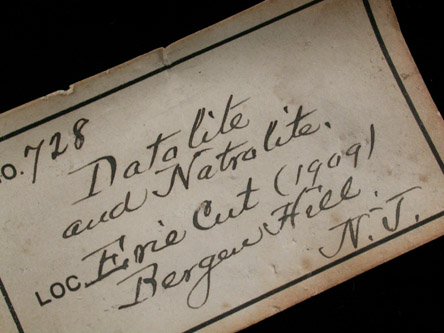 O. 728
Datolite
and Natrolite.
LOC. Erie Cut (1909)
Bergen Hill.
N.J.